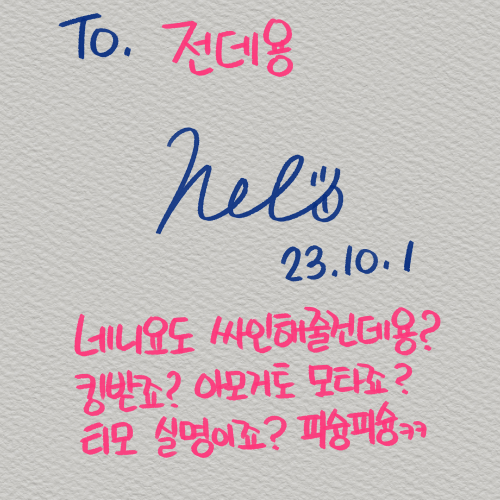 To. 전데용
Nels
23.10.1
네니요도 싸인해줄건데용?
킹받죠? 아모거토 모타죠?
티모 실명이죠? 피슝피슝ㅋㅋ